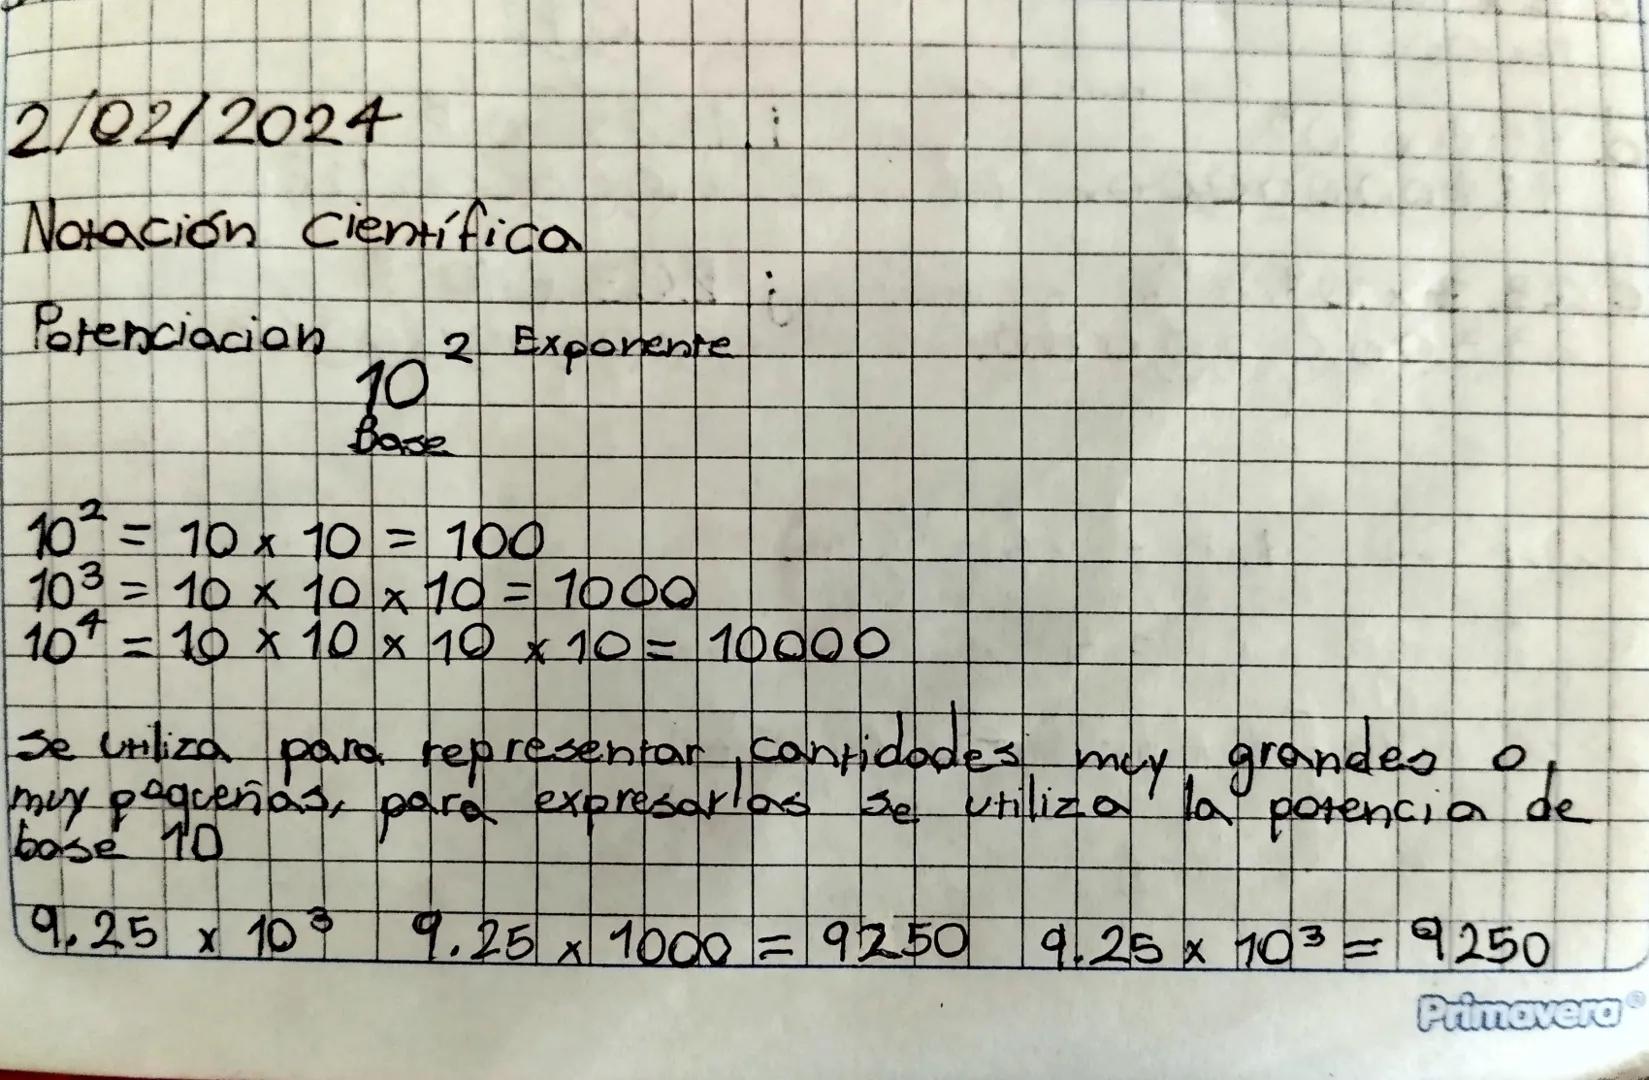 2/02/2024
Notación Científica
Potenciacion 10² Exponente
Base
10² = 10 x 10 = 100
10³ = 10 x 10 x 10 = 1000
10⁴ = 10 x 10 x 10 x 10 = 10000
se utiliza para representar, cantidades muy grandes o,
muy pequeñas, para expresarlas se utiliza la potencia de
base 10
9.25 x 10³ 9.25 x 1000 = 9250 9.25 x 10³ = 9250
Primavera®